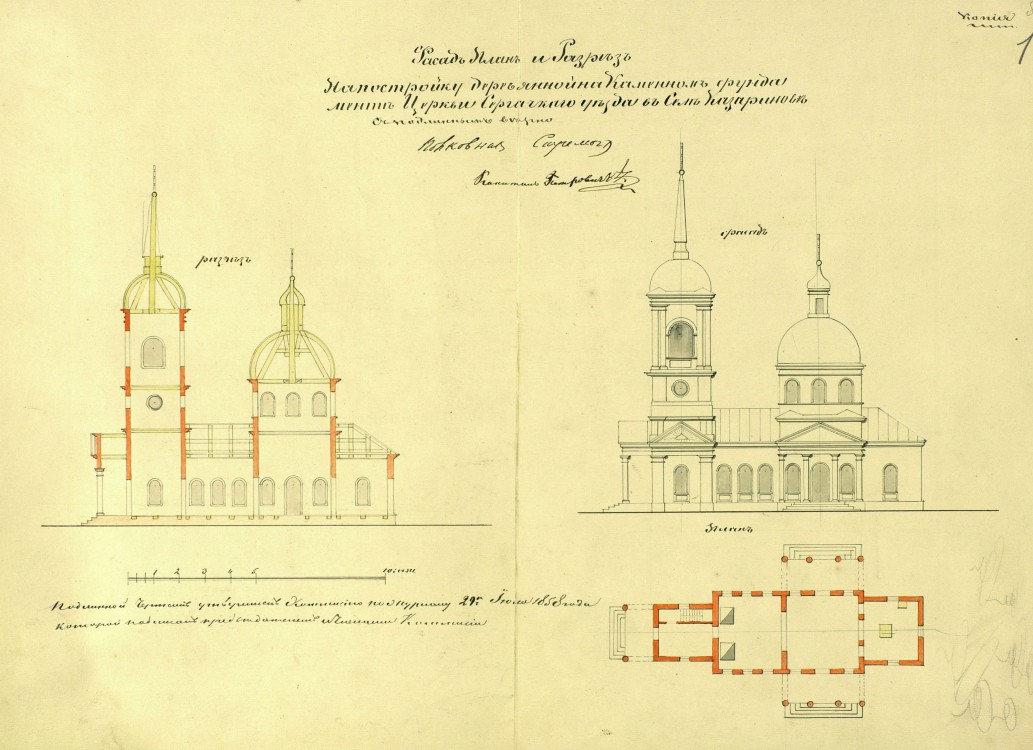 Копія
1
Фасадъ Планъ и Разрѣзъ
На постройку деревянной на Каменномъ фунда
ментѣ Церкви Сергачкаго уѣзда въ Селѣ Казариновѣ
Съ подлиннымъ вѣрно
Капитанъ Петровичъ
разрѣзъ
фасадъ
Планъ
1 2 3 4 5 10 саж
Подлинной Чертежъ утвержденъ Коммисіею по журналу 29го Іюля 1858 года
которой подписали председатель и Члены Коммисіи